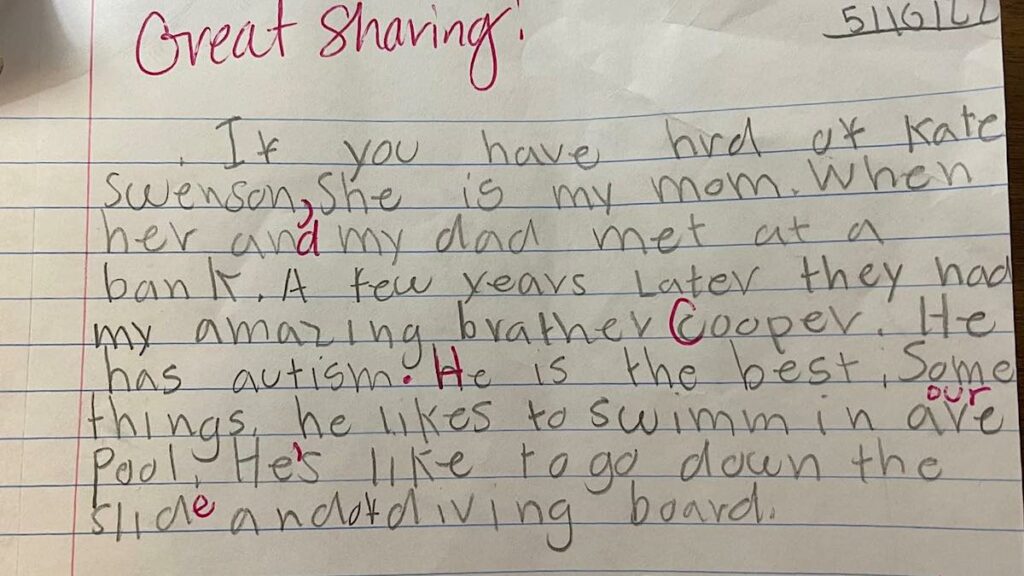 Great Sharing!
5/16/22
If you have hrd of Kate
Swenson, She is my mom. When
her and my dad met at a
bank. A few years Later they had
my amazing brather Cooper. He
has autism. He is the best. Some
our
things, he likes to swimm in are
Pool. He's like to go down the
slide and of diving board.